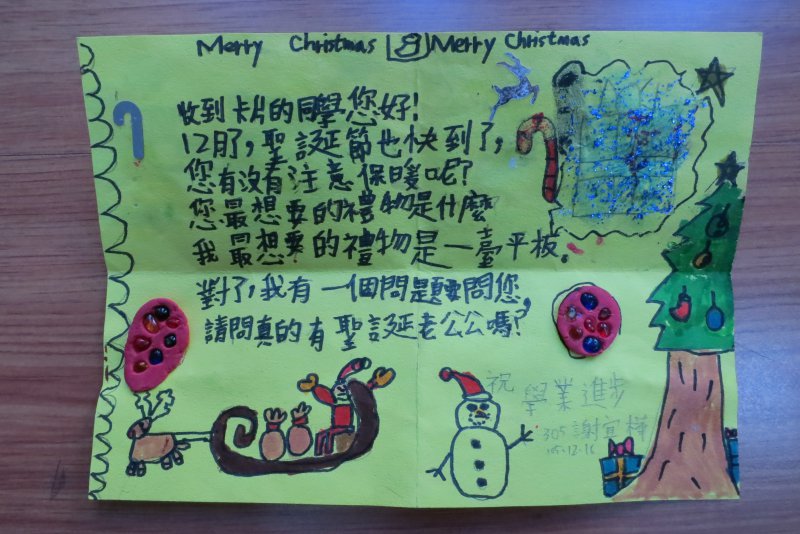 Merry Christmas Merry Christmas
收到卡片的同學您好!
12月了,聖誕節也快到了,
您有沒有注意保暖呢?
您最想要的禮物是什麼
我最想要的禮物是一臺平板。
對了,我有一個問題要問您,
請問真的有聖誕老公公嗎?
祝
學業進步
305謝宜樺
05.12.16